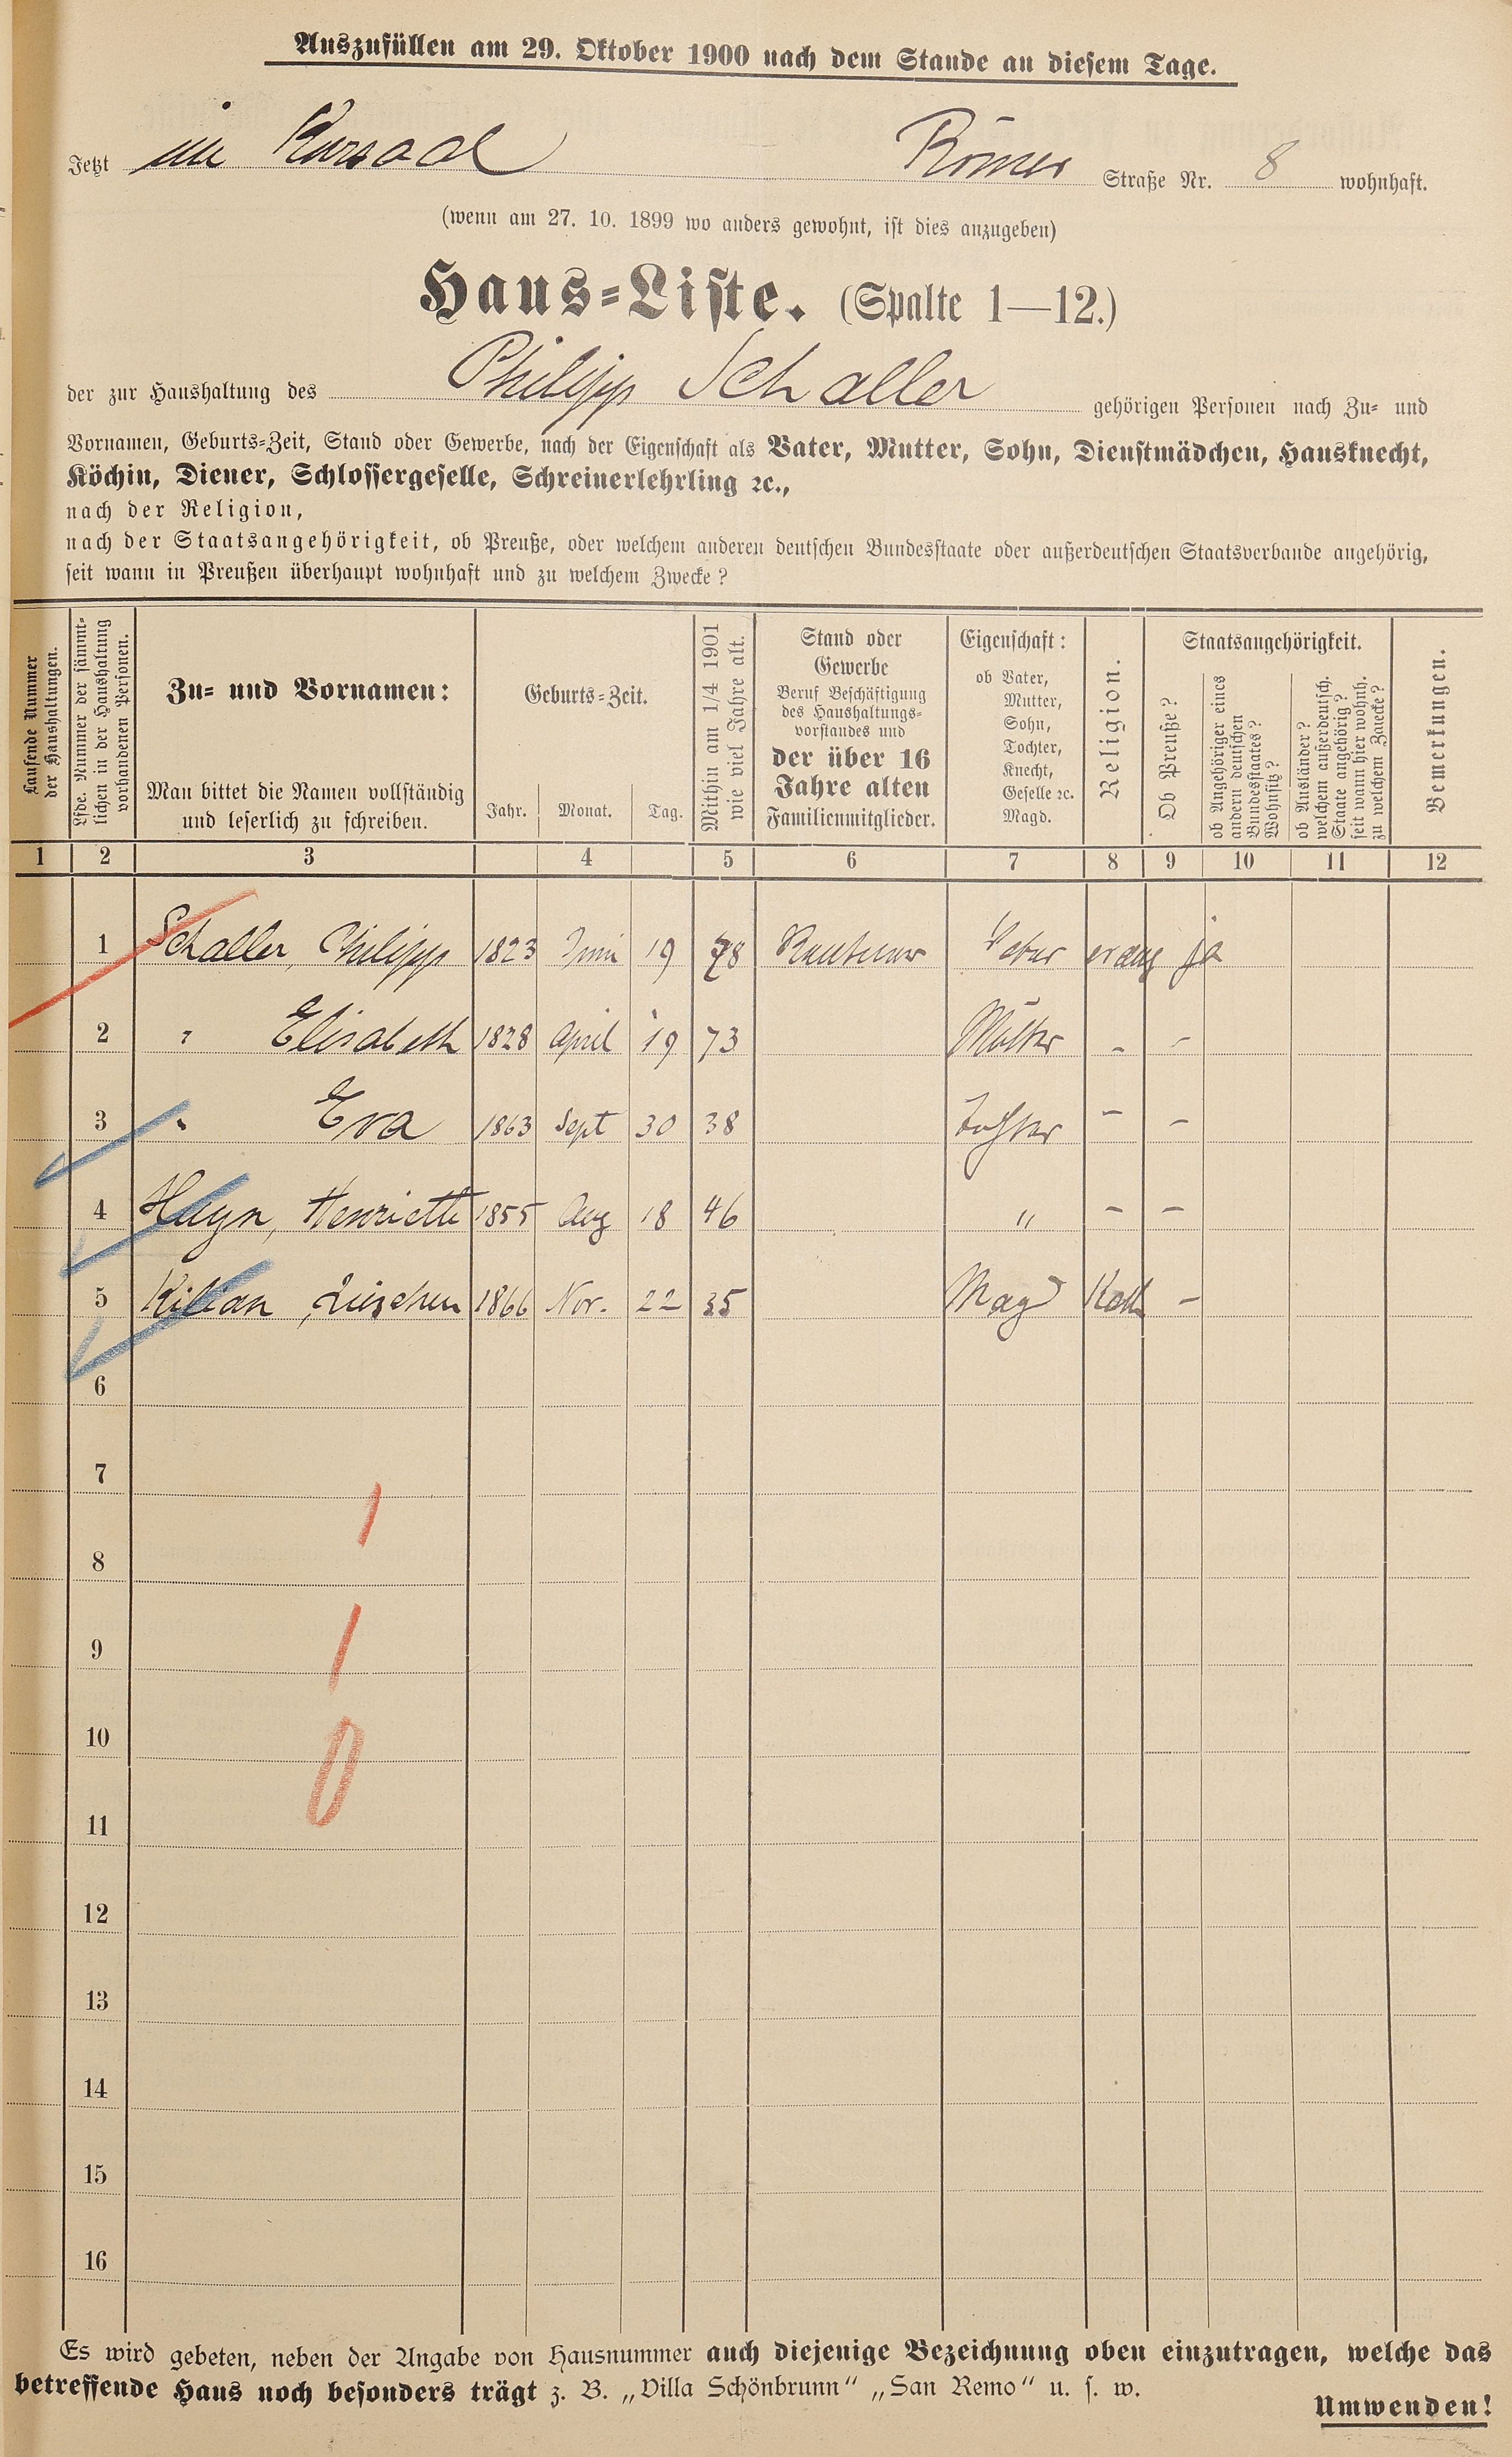 Auszufüllen am 29. Oktober 1900 nach dem Stande an diesem Tage.
Jetzt im Kursaal Römer Straße Nr. 8 wohnhaft.
(wenn am 27. 10. 1899 wo anders gewohnt, ist dies anzugeben)
Haus-Liste. (Spalte 1—12.)
der zur Haushaltung des Philipp Schaller gehörigen Personen nach Zu- und
Vornamen, Geburts-Zeit, Stand oder Gewerbe, nach der Eigenschaft als Vater, Mutter, Sohn, Dienstmädchen, Hausknecht,
Köchin, Diener, Schlossergeselle, Schreinerlehrling ꝛc.,
nach der Religion,
nach der Staatsangehörigkeit, ob Preuße, oder welchem anderen deutschen Bundesstaate oder außerdeutschen Staatsverbande angehörig,
seit wann in Preußen überhaupt wohnhaft und zu welchem Zwecke?
Laufende Nummer
der Haushaltungen.
Lfde. Nummer der sämmt-
lichen in der Haushaltung
vorhandenen Personen.
Zu- und Vornamen:
Man bittet die Namen vollständig
und leserlich zu schreiben.
Geburts-Zeit.
Jahr. Monat. Tag.
Mithin am 1/4 1901
wie viel Jahre alt.
Stand oder
Gewerbe
Beruf Beschäftigung
des Haushaltungs-
vorstandes und
der über 16
Jahre alten
Familienmitglieder.
Eigenschaft:
ob Vater,
Mutter,
Sohn,
Tochter,
Knecht,
Geselle ꝛc.
Magd.
Religion.
Staatsangehörigkeit.
Ob Preuße?
ob Angehöriger eines
andern deutschen
Bundesstaates?
Wohnsitz?
ob Ausländer?
welchem außerdeutsch.
Staate angehörig?
seit wann hier wohnh.
zu welchem Zwecke?
Bemerkungen.
1 2 3 4 5 6 7 8 9 10 11 12
1 Schaller, Philipp 1823 Juni 19 78 Rentner Vater evang ja
2 " Elisabeth 1828 April 19 73 Mutter - -
3 " Eva 1863 Sept 30 38 Tochter - -
4 Heyn, Henriette 1855 Aug 18 46 " - -
5 Kilian, Lieschen 1866 Nov. 22 35 Magd Kath -
6
7
8
9
10
11
12
13
14
15
16
Es wird gebeten, neben der Angabe von Hausnummer auch diejenige Bezeichnung oben einzutragen, welche das
betreffende Haus noch besonders trägt z. B. „Villa Schönbrunn“ „San Remo“ u. s. w.
Umwenden!